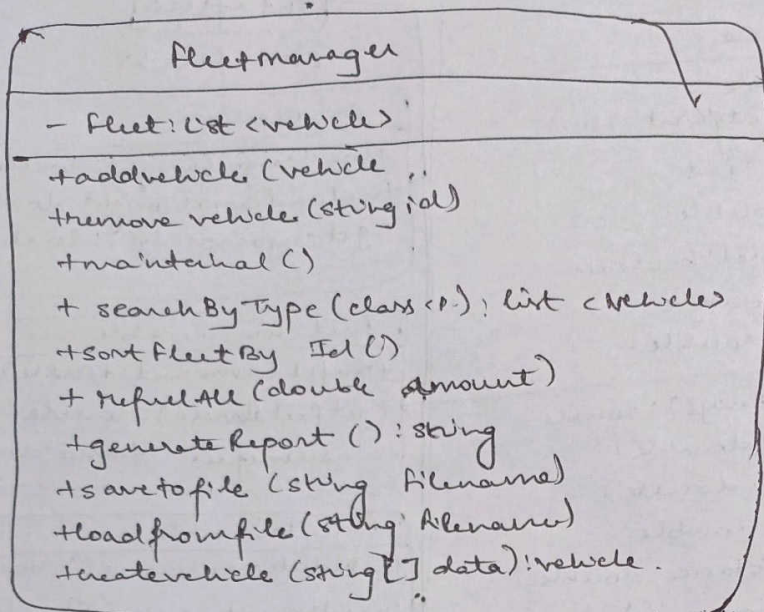 Fleetmanager
- fleet: list <vehicle>
+addvehicle (vehicle
+remove vehicle (string id)
+maintainal ()
+ searchByType (class <?>): list <vehicle>
+sortfleetBy Id ()
+ refuelAll (double amount)
+generateReport (): string
+savetofile (string filename)
+loadfromfile (string filename)
+createvehicle (string [] data): vehicle.